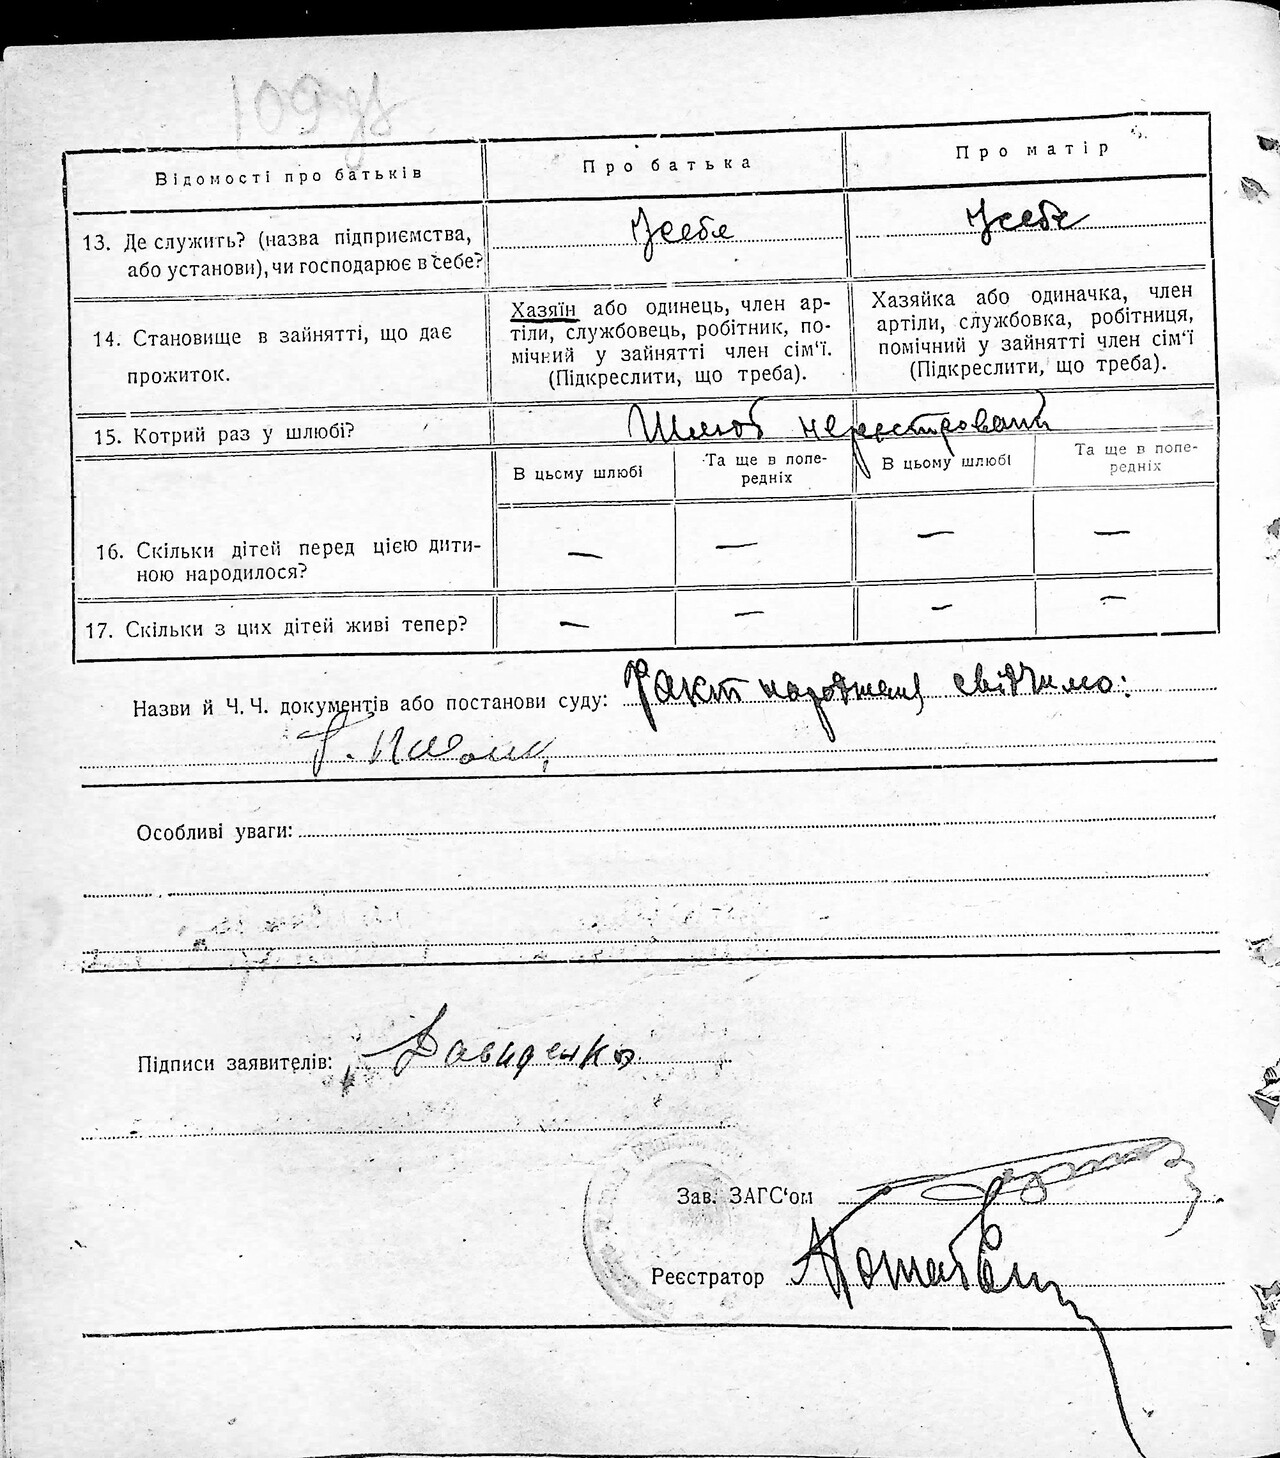 109 зв
Відомості про батьків
Про батька
Про матір
13. Де служить? (назва підприємства,
або установи), чи господарює в себе?
У себе
У себе
14. Становище в зайнятті, що дає
прожиток.
Хазяїн або одинець, член ар-
тілі, службовець, робітник, по-
мічний у зайнятті член сім'ї.
(Підкреслити, що треба).
Хазяйка або одиначка, член
артілі, службовка, робітниця,
помічний у зайнятті член сім'ї
(Підкреслити, що треба).
15. Котрий раз у шлюбі?
Шлюб нереєстрований
В цьому шлюбі
Та ще в попе-
редніх
В цьому шлюбі
Та ще в попе-
редніх
16. Скільки дітей перед цією дити-
ною народилося?
— — — —
17. Скільки з цих дітей живі тепер?
— — — —
Назви й Ч. Ч. документів або постанови суду: Факт народження свідчимо:
Особливі уваги:
Підписи заявителів: Давиденко
Зав. ЗАГС'ом
Реєстратор